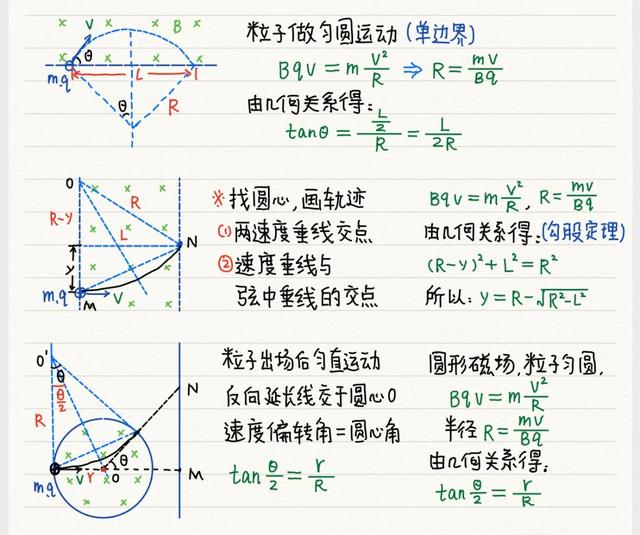 V B
θ
m,q L
θ R
粒子做匀圆运动(单边界)
Bqv=m\frac{V^2}{R} ⇒ R=\frac{mv}{Bq}
由几何关系得:
tanθ=\frac{\frac{L}{2}}{R}=\frac{L}{2R}
O
R
R-y
L
N
y
m,q V
M
※找圆心,画轨迹
(1)两速度垂线交点
②速度垂线与
弦中垂线的交点
Bqv=m\frac{v^2}{R}, R=\frac{mv}{Bq}
由几何关系得:(勾股定理)
(R-y)²+L²=R²
所以:y=R-√R²-L²
O'
θ
\frac{θ}{2}
R
N
θ
V r O M
m,q
粒子出场后匀直运动
反向延长线交于圆心O
速度偏转角=圆心角
tan\frac{θ}{2}=\frac{r}{R}
圆形磁场,粒子匀圆,
Bqv=m\frac{V^2}{R}
半径R=\frac{mv}{Bq}
由几何关系得:
tan\frac{θ}{2}=\frac{r}{R}